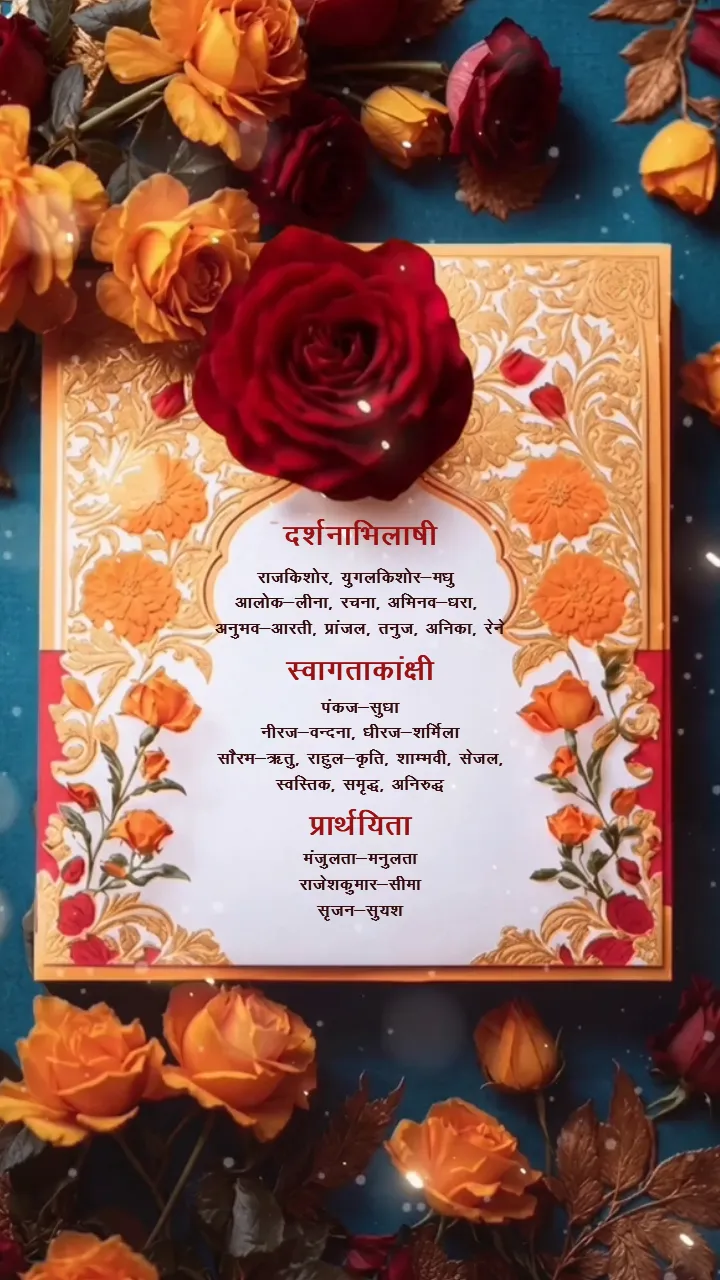 दर्शनाभिलाषी
राजकिशोर, युगलकिशोर–मधु
आलोक–लीना, रचना, अभिनव–धरा,
अनुभव–आरती, प्रांजल, तनुज, अनिका, रेने
स्वागताकांक्षी
पंकज–सुधा
नीरज–वन्दना, धीरज–शर्मिला
सौरभ–ऋतु, राहुल–कृति, शाम्भवी, सेजल,
स्वस्तिक, समृद्ध, अनिरुद्ध
प्रार्थयिता
मंजुलता–मनुलता
राजेशकुमार–सीमा
सृजन–सुयश